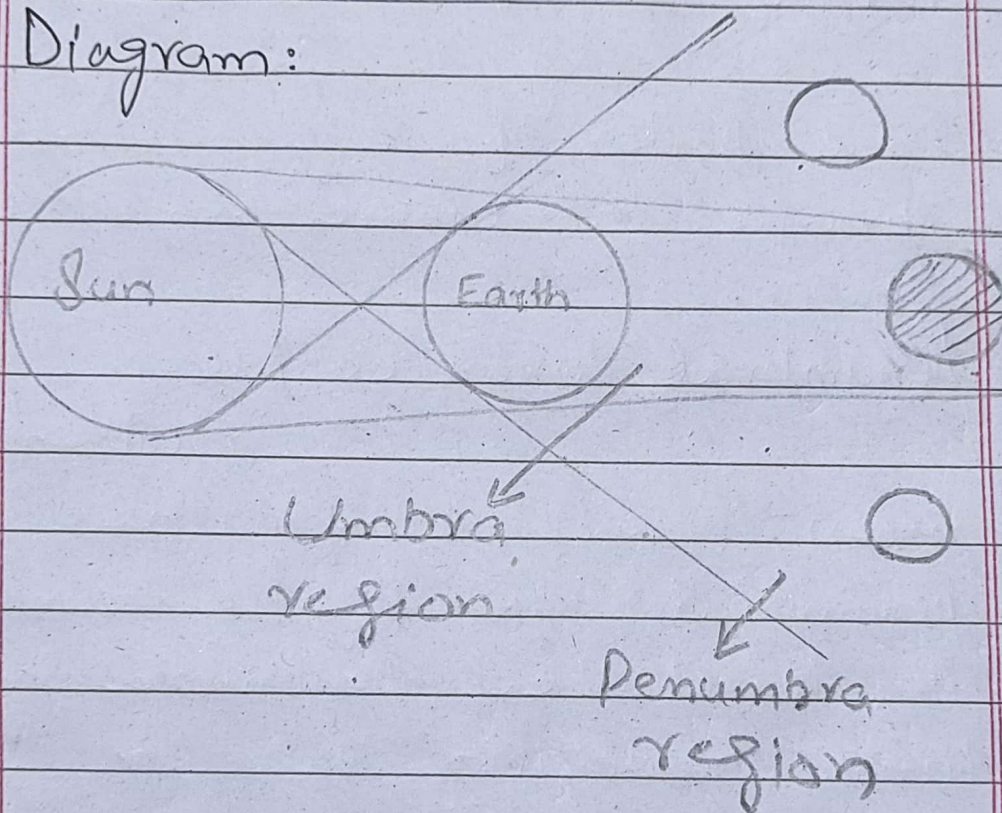 Diagram:
Sun
Earth
Umbra
region
Penumbra
region